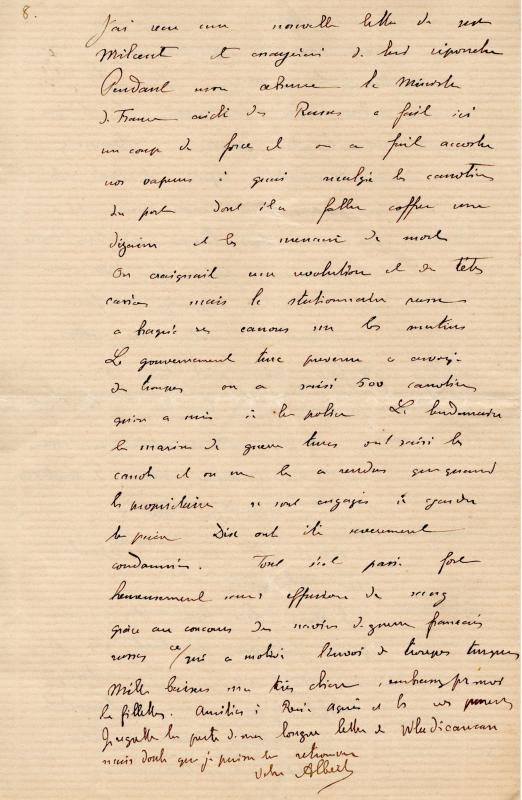 8.
J'ai reçu une nouvelle lettre de
Milcent et essayerai de lui répondre
Pendant mon absence le Ministre
de France aidé des Russes a fait ici
un coup de force et on a fait accoster
nos vapeurs à quai malgré les canotiers
du port dont il a fallu coffrer une
dizaine et les menacer de mort
On craignait une révolution et des têtes
cassées mais le stationnaire russe
a braqué ses canons sur les mutins
Le gouvernement turc prévenu a envoyé
des troupes on a saisi 500 canotiers
qu'on a mis à la police Le lendemain
la marine de guerre turque ont saisi les
canots et on ne les a rendus que quand
les propriétaires se sont engagés à garder
la paix Dix ont été sévèrement
condamnés. Tout s'est passé fort
heureusement sans effusion de sang
grâce au concours des navires de guerre français
russes ce qui a motivé l'envoi de troupes turques
Mille baisers ma très chère, embrasse pr moi
les fillettes. Amitiés à et les
Je regrette la perte d'une longue lettre de Wladicaucau
mais doute que je puisse la retrouver
Votre Albert